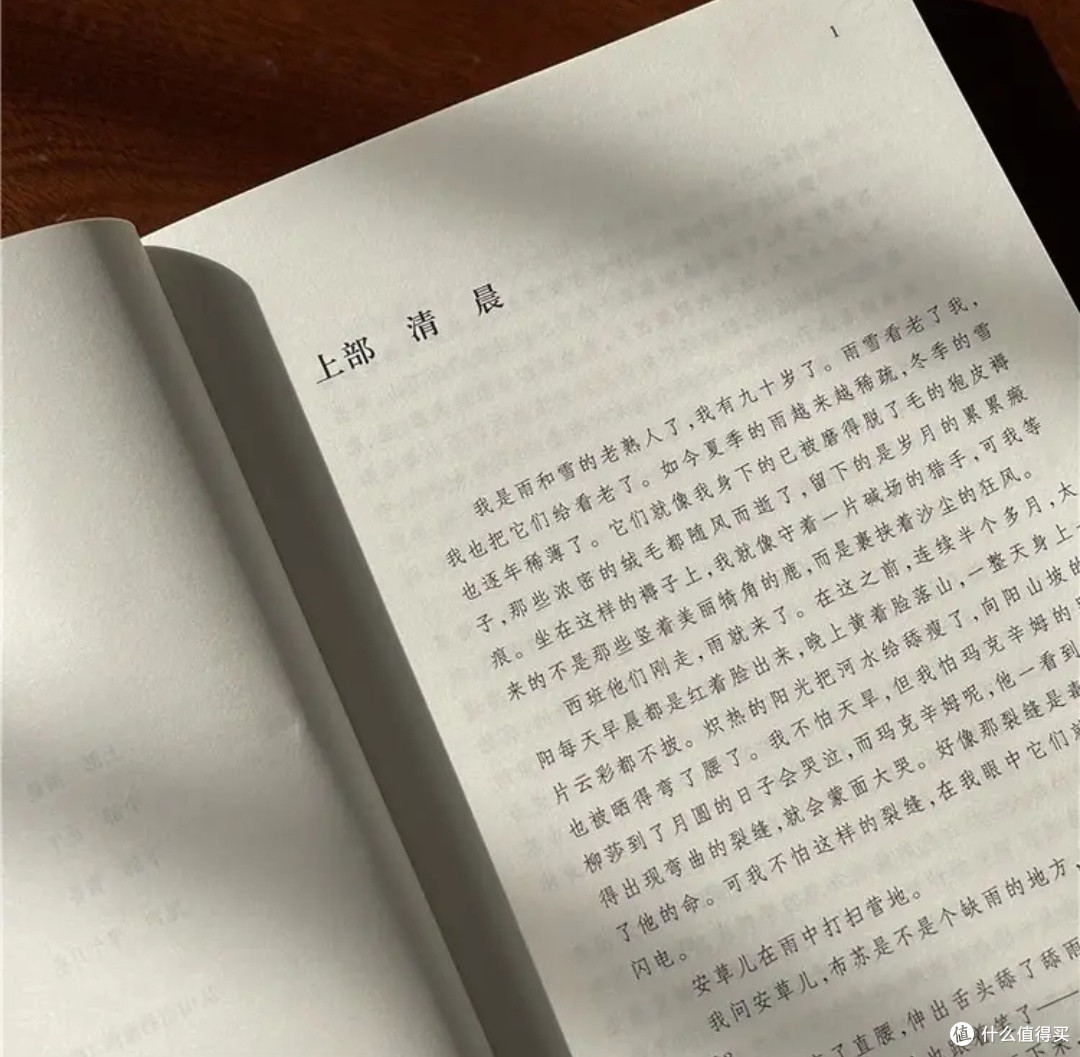 1
上部 清 晨
我是雨和雪的老熟人了，我有九十岁了。雨雪看老了我，
我也把它们给看老了。如今夏季的雨越来越稀疏，冬季的雪
也逐年稀薄了。它们就像我身下的已被磨得脱了毛的狍皮褥
子，那些浓密的绒毛都随风而逝了，留下的是岁月的累累瘢
痕。坐在这样的褥子上，我就像守着一片碱场的猎手，可我等
来的不是那些竖着美丽犄角的鹿，而是裹挟着沙尘的狂风。
西班他们刚走，雨就来了。在这之前，连续半个多月，太
阳每天早晨都是红着脸出来，晚上黄着脸落山，一整天身上一
片云彩都不披。炽热的阳光把河水给舔瘦了，向阳山坡的
也被晒得弯了腰了。我不怕天旱，但我怕玛克辛姆的
柳莎到了月圆的日子会哭泣，而玛克辛姆呢，他一看到
得出现弯曲的裂缝，就会蒙面大哭。好像那裂缝是毒
了他的命。可我不怕这样的裂缝，在我眼中它们就
闪电。
安草儿在雨中打扫营地。
我问安草儿，布苏是不是个缺雨的地方，
了直腰，伸出舌头舔了舔雨
笑了——
值 什么值得买